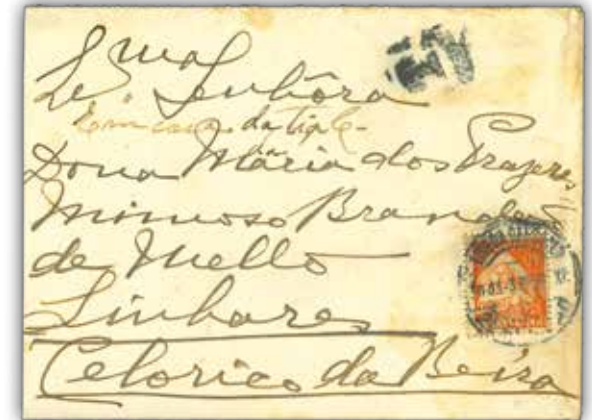 Exma
Sra Senhôra
Em casa da tia
Dona Mária dos Prazeres
Mimoso Brandão
de Mello
Linhares
Celorico da Beira